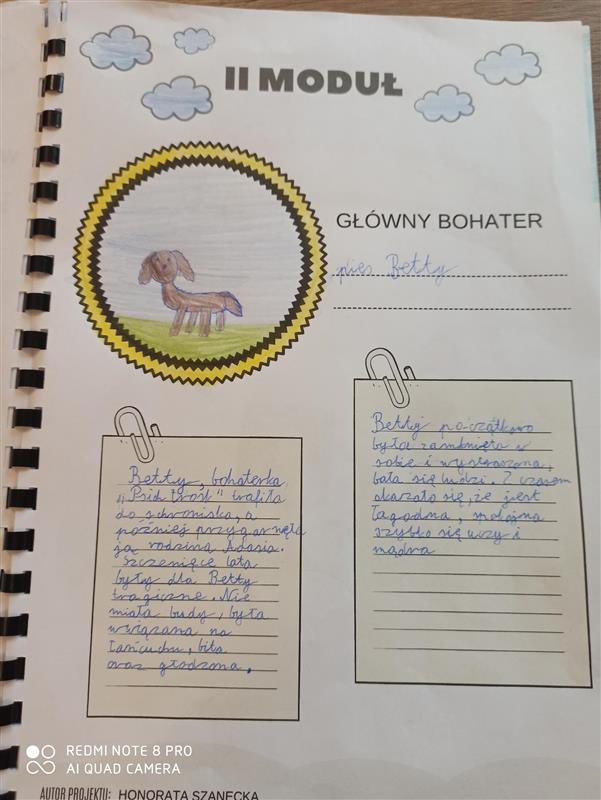 II MODUŁ
GŁÓWNY BOHATER
pies Betty
Betty początkowo
była zamknięta w
sobie i wystraszona,
bała się ludzi. Z czasem
okazało się, że jest
łagodna, spokojna
szybko się uczy i
mądra
Betty, bohaterka
"Psich trosk" trafiła
do schroniska, a
później przygarnęła
ją rodzina Adasia.
Szczenięce lata
były dla Betty
tragiczne. Nie
miała budy, była
uwiązana na
łańcuchu, bita
oraz głodzona.
REDMI NOTE 8 PRO
AI QUAD CAMERA
AUTOR PROJEKTU: HONORATA SZANECKA